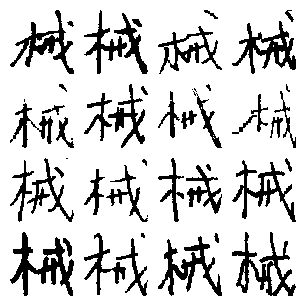 械械械械
械械械械
械械械械
械械械械